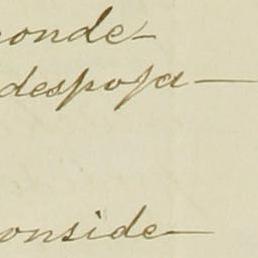 conde-
despoja-
onside-